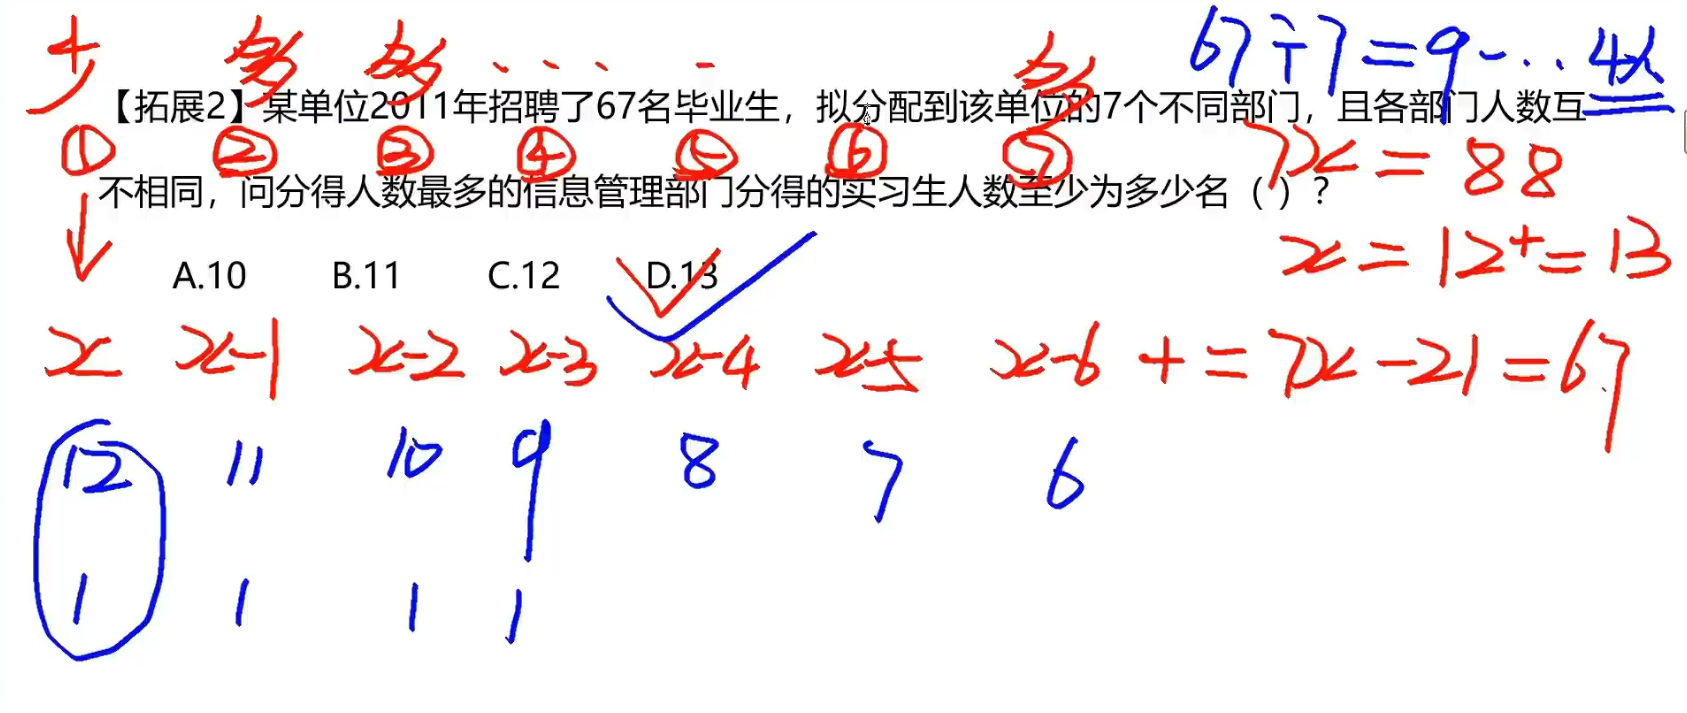 少 多 多 . . . - 多 67÷7=9-...4人
【拓展2】某单位2011年招聘了67名毕业生，拟分配到该单位的7个不同部门，且各部门人数互
① ② ③ ④ ⑤ ⑥ ⑦ 7x=88
不相同，问分得人数最多的信息管理部门分得的实习生人数至少为多少名（ ）？
x=12⁺=13
A.10 B.11 C.12 D.13
x x-1 x-2 x-3 x-4 x-5 x-6 + = 7x-21=67
12 11 10 9 8 7 6
1 1 1 1